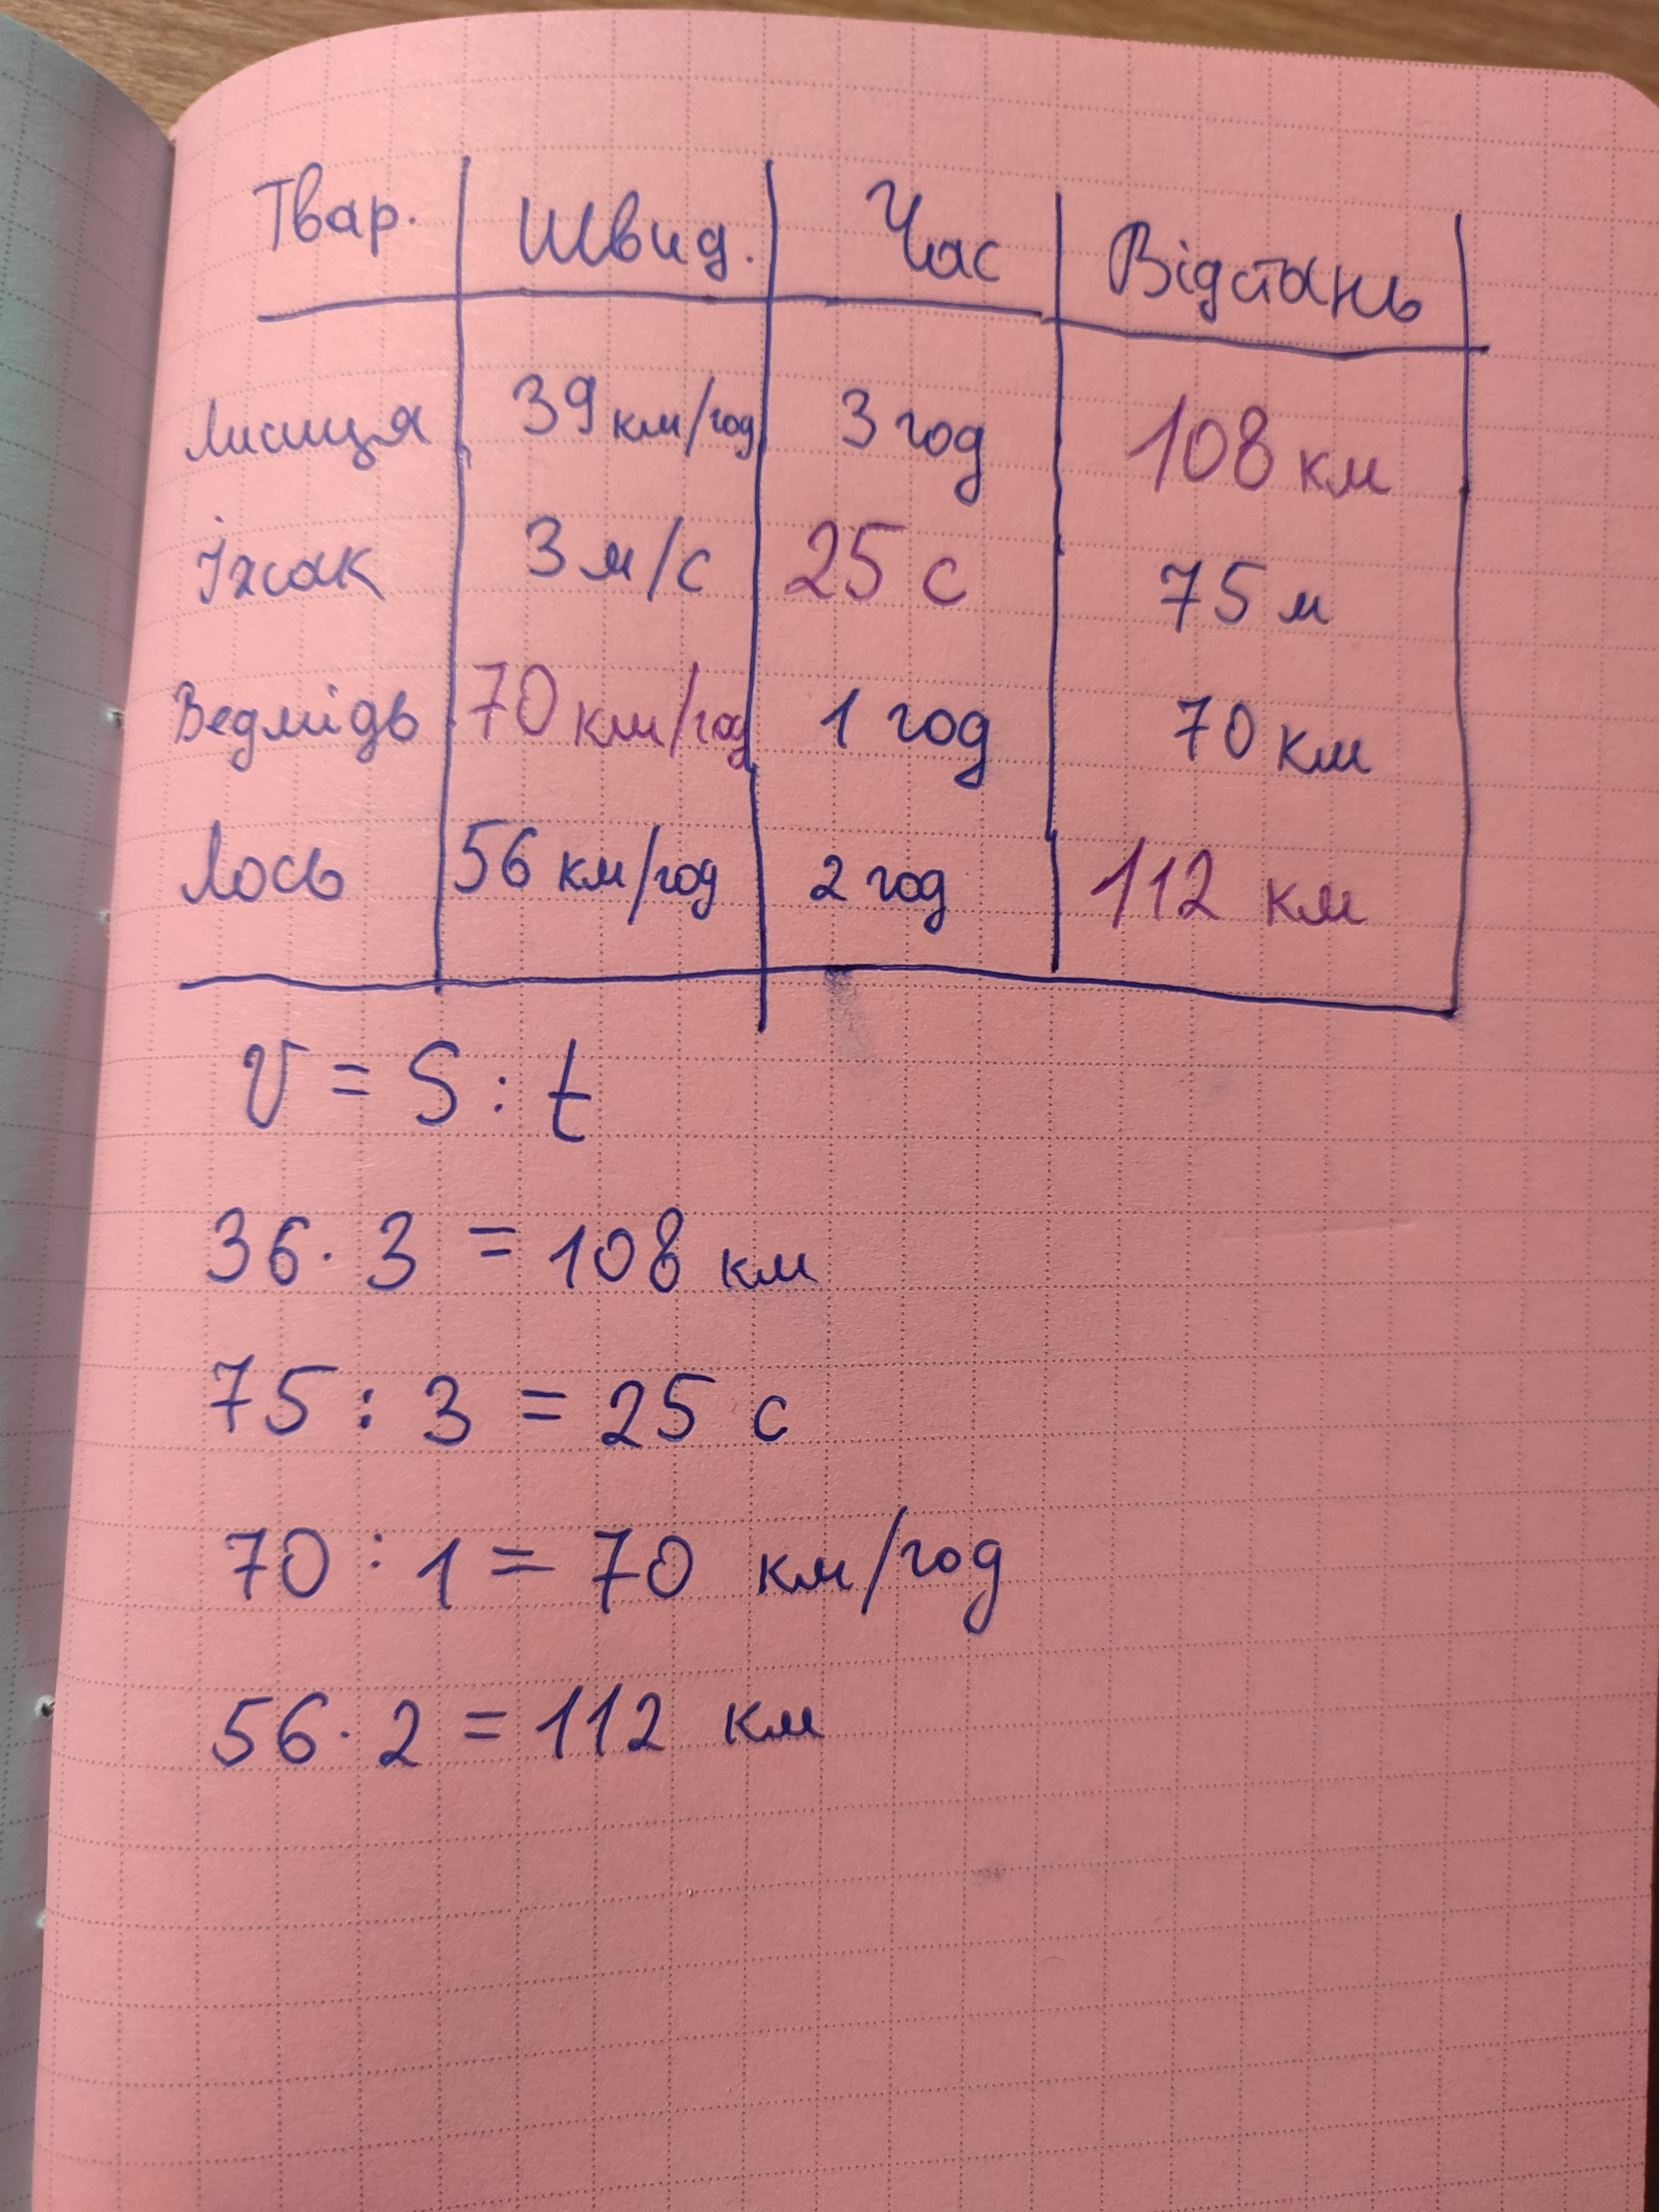 Твар. Швид. Час Відстань
Лисиця 39 км/год 3 год 108 км
Їжак 3 м/с 25 с 75 м
Ведмідь 70 км/год 1 год 70 км
Лось 56 км/год 2 год 112 км
V = S : t
36 · 3 = 108 км
75 : 3 = 25 с
70 : 1 = 70 км/год
56 · 2 = 112 км